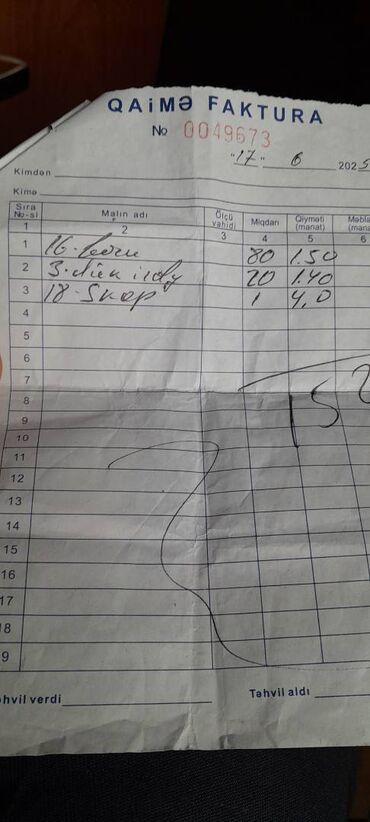 QAİMƏ FAKTURA
№ 0049673
"17" 6 2025
Kimdən
Kimə
Sıra №-si Malın adı Ölçü vahidi Miqdarı Qiyməti (manat) Məblə (manat
1 2 3 4 5 6
1 16. 80 1.50
2 3. 20 1.40
3 18. Skop 1 4,0
4
5
6
7
8 152
9
10
11
12
13
14
15
16
17
18
9
əhvil verdi Təhvil aldı